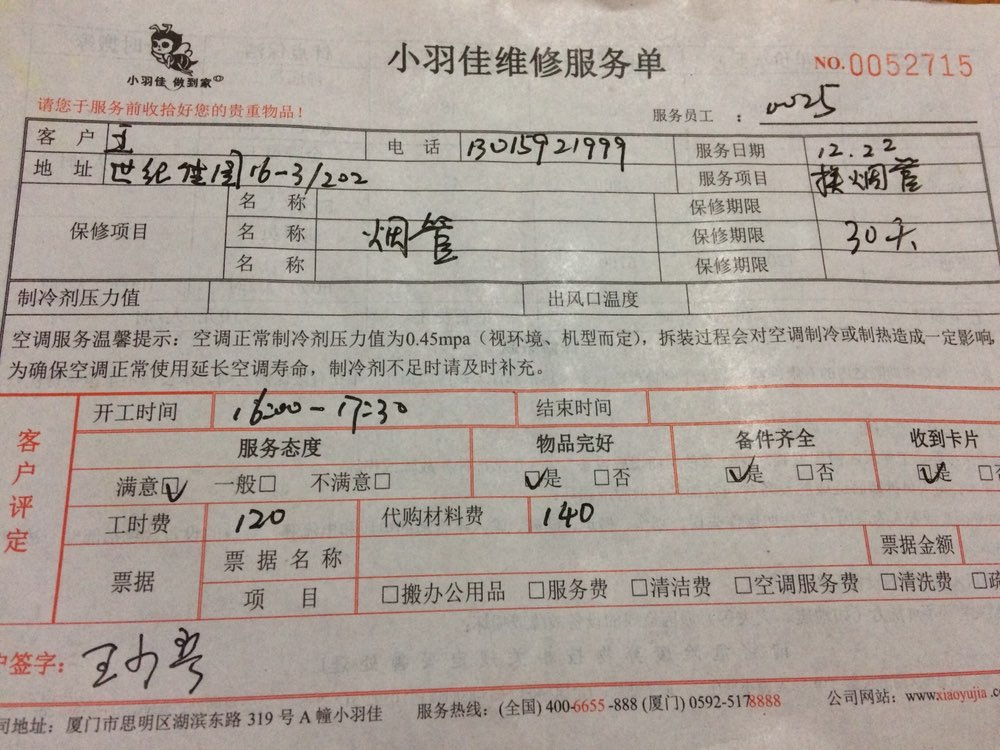 小羽佳 做到家
小羽佳维修服务单
NO.0052715
请您于服务前收拾好您的贵重物品！
服务员工 ： 0025
客 户 王 电 话 13015921999 服务日期 12.22
地 址 世纪佳园16-3/202 服务项目 换烟管
保修项目
名 称 保修期限
名 称 烟管 保修期限 30天
名 称 保修期限
制冷剂压力值 出风口温度
空调服务温馨提示：空调正常制冷剂压力值为0.45mpa（视环境、机型而定），拆装过程会对空调制冷或制热造成一定影响，
为确保空调正常使用延长空调寿命，制冷剂不足时请及时补充。
客户评定
开工时间 16:00-17:30 结束时间
服务态度 物品完好 备件齐全 收到卡片
满意☑ 一般□ 不满意□ ☑是 □否 ☑是 □否 ☑是 □否
工时费 120 代购材料费 140
票据 票据名称 票据金额
项 目 □搬办公用品 □服务费 □清洁费 □空调服务费 □清洗费 □疏
户签字：
司地址：厦门市思明区湖滨东路 319 号 A 幢小羽佳 服务热线：(全国) 400-6655-888 (厦门) 0592-5178888 公司网站：www.xiaoyujia.c